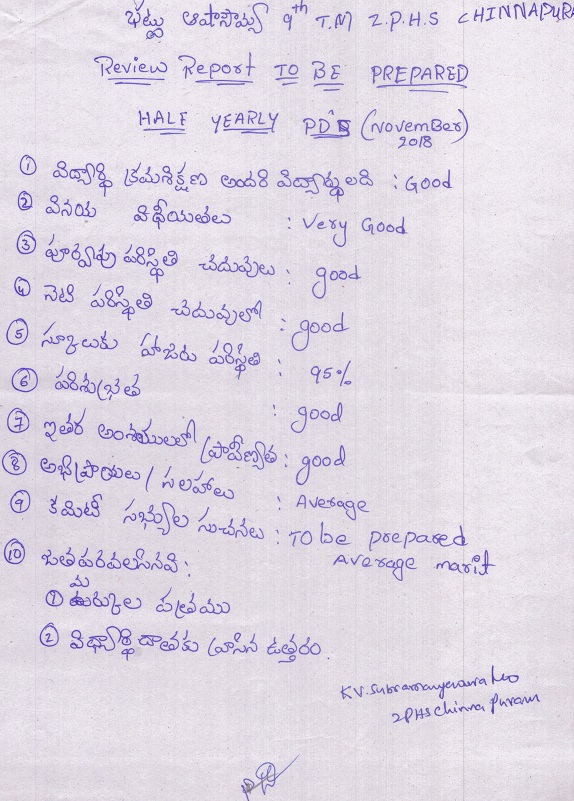 భట్టు ఆషాసౌమ్య 9th T.M Z.P.H.S CHINNAPURA
Review Report TO BE PREPARED
HALF YEARLY PD'S (November) 2018
① విద్యార్థి క్రమశిక్షణ అందరి విద్యార్థులది : Good
② వినయ విధేయతలు : Very Good
③ పూర్వపు పరిస్థితి చదువులు : good
④ నేటి పరిస్థితి చదువులో : good
⑤ స్కూలుకు హాజరు పరిస్థితి : 95%
⑥ పరిశుభ్రత : good
⑦ ఇతర అంశములలో ప్రావీణ్యత : good
⑧ అభిప్రాయలు / సలహాలు : Average
⑨ కమిటీ సభ్యుల సుచనలు : TO be prepared
Average marit
⑩ జతపరవలసినవి :
① మార్కుల పత్రము
② విధ్యార్థి దాతకు వ్రాసిన ఉత్తరం.
KV.Subramanyeswara Rao
ZPHS Chinna Puram